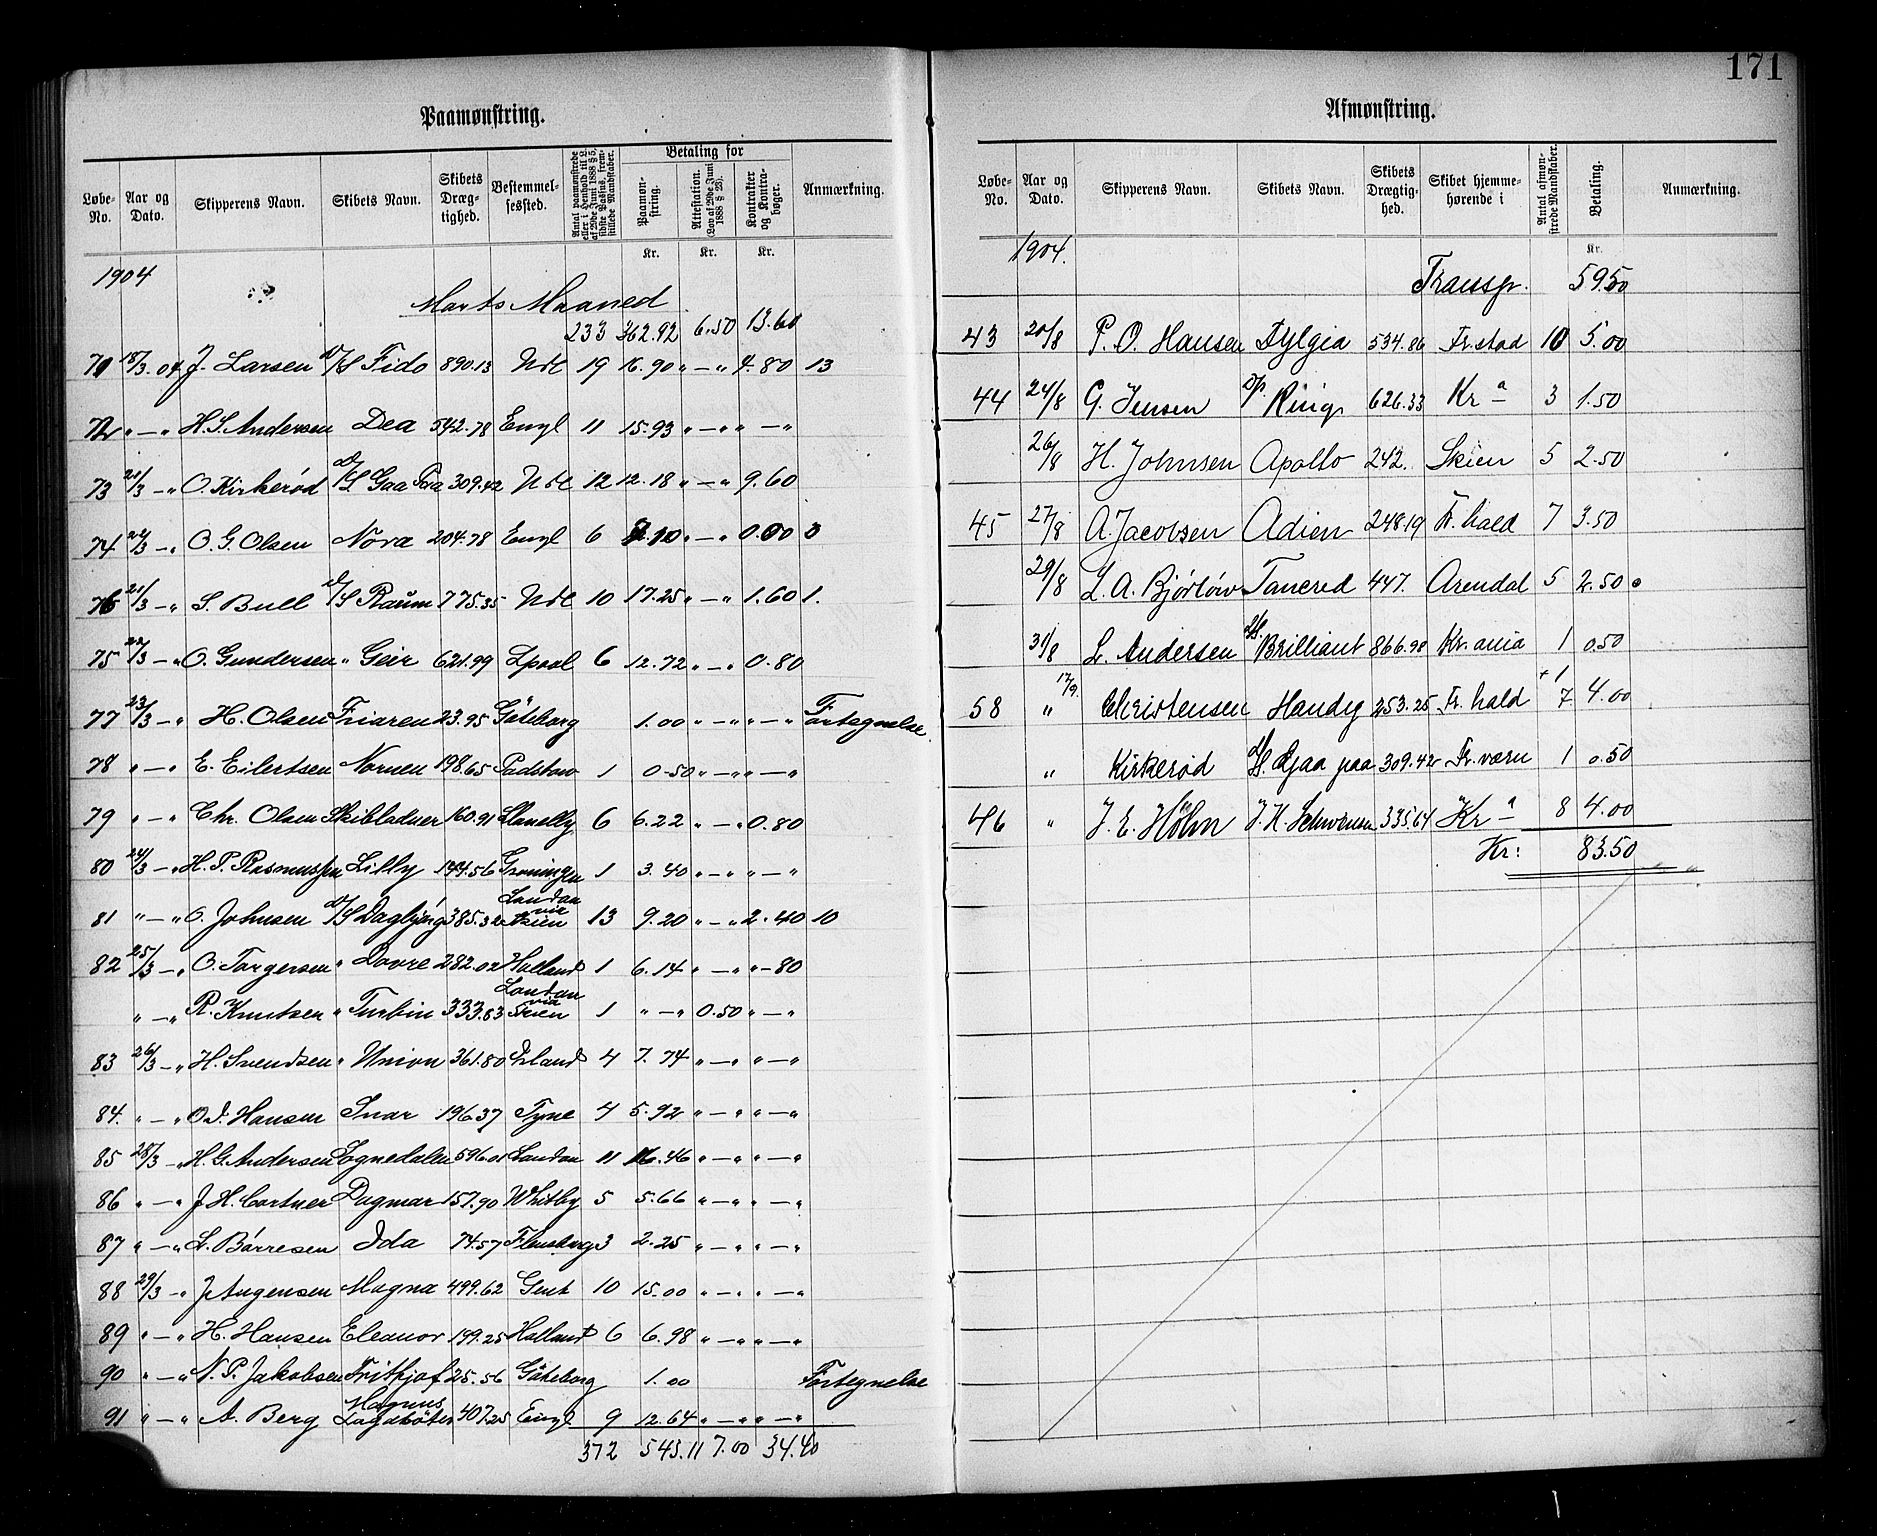 171
Paamønstring.
Løbe-No. Aar og Dato. Skipperens Navn. Skibets Navn. Skibets Dræg-tighed. Bestemmel-sessted. Antal paamønstrede eller i Henhold til L. af 29de Juni 1888 § 5, sidste Passus, frem-stillede Mandskaber. Betaling for Paamøn-string. Attestation. (Lov af 29de Juni 1888 § 23). Kontrakter og Kontra-bøger. Anmærkning.
Kr. Kr. Kr.
1904
Marts Maaned
233 362.92 6.50 13.60
71 18/3 04 J. Larsen D/S Fido 890.13 Ndl 19 16.90 " — " 4.80 13
72 " — " H. S. Andersen Dea 542.78 Engl 11 15.93 " — " " — "
73 21/3 — " O. Kirkerød D/S Gaa Paa 309.42 Ndl 12 12.18 " — " 9.60
74 22/3 — " O. G. Olsen Nora 204.78 Engl 6 0.00
76 21/3 — " S. Bull D/S Raum 775.35 Ndl 10 17.25 " — " 1.60 1.
75 22/3 — " O. Gundersen " Geir 621.99 Lpool 6 12.72 " — " 0.80
77 23/3 — " H. Olsen Friaren 23.95 Göteborg 1.00 " — " " — " Fortegnelse
78 " — " E. Eilertsen Nornen 198.65 Padstow 1 0.50 " — " " — "
79 " — " Chr. Olsen Skibladner 160.91 Llanelly 6 6.22 " — " 0.80
80 24/3 — " H. P. Rasmussen Lilly 144.56 Groningen 1 3.40 " — " " — "
81 " — " O. Johnsen D/S Dagbjørg 385.32 London via Skien 13 9.20 " — " 2.40 10
82 25/3 — " O. Torgersen " Dovre 282.02 Holland 1 6.14 " — " " -80
" — " R. Knutsen " Turbin 333.83 London via Skien 1 " — " 0.50 " — "
83 26/3 — " H. Svendsen " Union 361.80 Island 4 7.74 " — " " — "
84. " — " O. J. Hansen Snar 196.37 Tyne 4 5.92 " — " " — "
85 28/3 — " H. G. Andersen Sognedalen 596.01 London 11 16.46 " — " " — "
86 " — " J. H. Cortner Dagmar 157.90 Whitby 5 5.66 " — " " — "
87 " — " L. Børresen Ida 74.57 Flensborg 3 2.25 " — " " — "
88 29/3 — " J Aagensen Magna 499.62 Gent 10 15.00 " — " " — "
89 " — " H. Hansen Eleanor 199.25 Holland 6 6.98 " — " " — "
90 " — " N. P. Jakobsen Frithjof 25.56 Göteborg 1.00 Fortegnelse
91 " — " A. Berg Magnus Lagabøter 407.25 Engl 9 12.64 " — " " — "
372 543.11 7.00 34.40
Afmønstring.
Løbe-No. Aar og Dato. Skipperens Navn. Skibets Navn. Skibets Drægtig-hed. Skibet hjemme-hørende i Antal afmøn-strede Mandskaber. Betaling. Anmærkning.
Kr.
1904.
Transp. 59.50
43 20/8 P. O. Hansen Fylgia 534.86 Fr.stad 10 5.00
44 24/8 G. Jensen D/S. Ring 626.33 Kra 3 1.50
26/8 H. Johnsen Apollo 242. Skien 5 2.50
45 27/8 A. Jacobsen Adien 248.19 Fr. hald 7 3.50
29/8 L. A. Bjørlow Tancred 447. Arendal 5 2.50
31/8 L. Andersen D/S. Brilliant 866.98 Kr.ania 1 0.50
58 " 17/9. Christensen Handy 253.25 Fr. hald +1 7 4.00
" Kirkerød D/S. Gaa paa 309.42 Fr. værn 1 0.50
46 " J. E. Holm J. H. Schwensen 335.64 Kra 8 4.00
Kr: 83.50